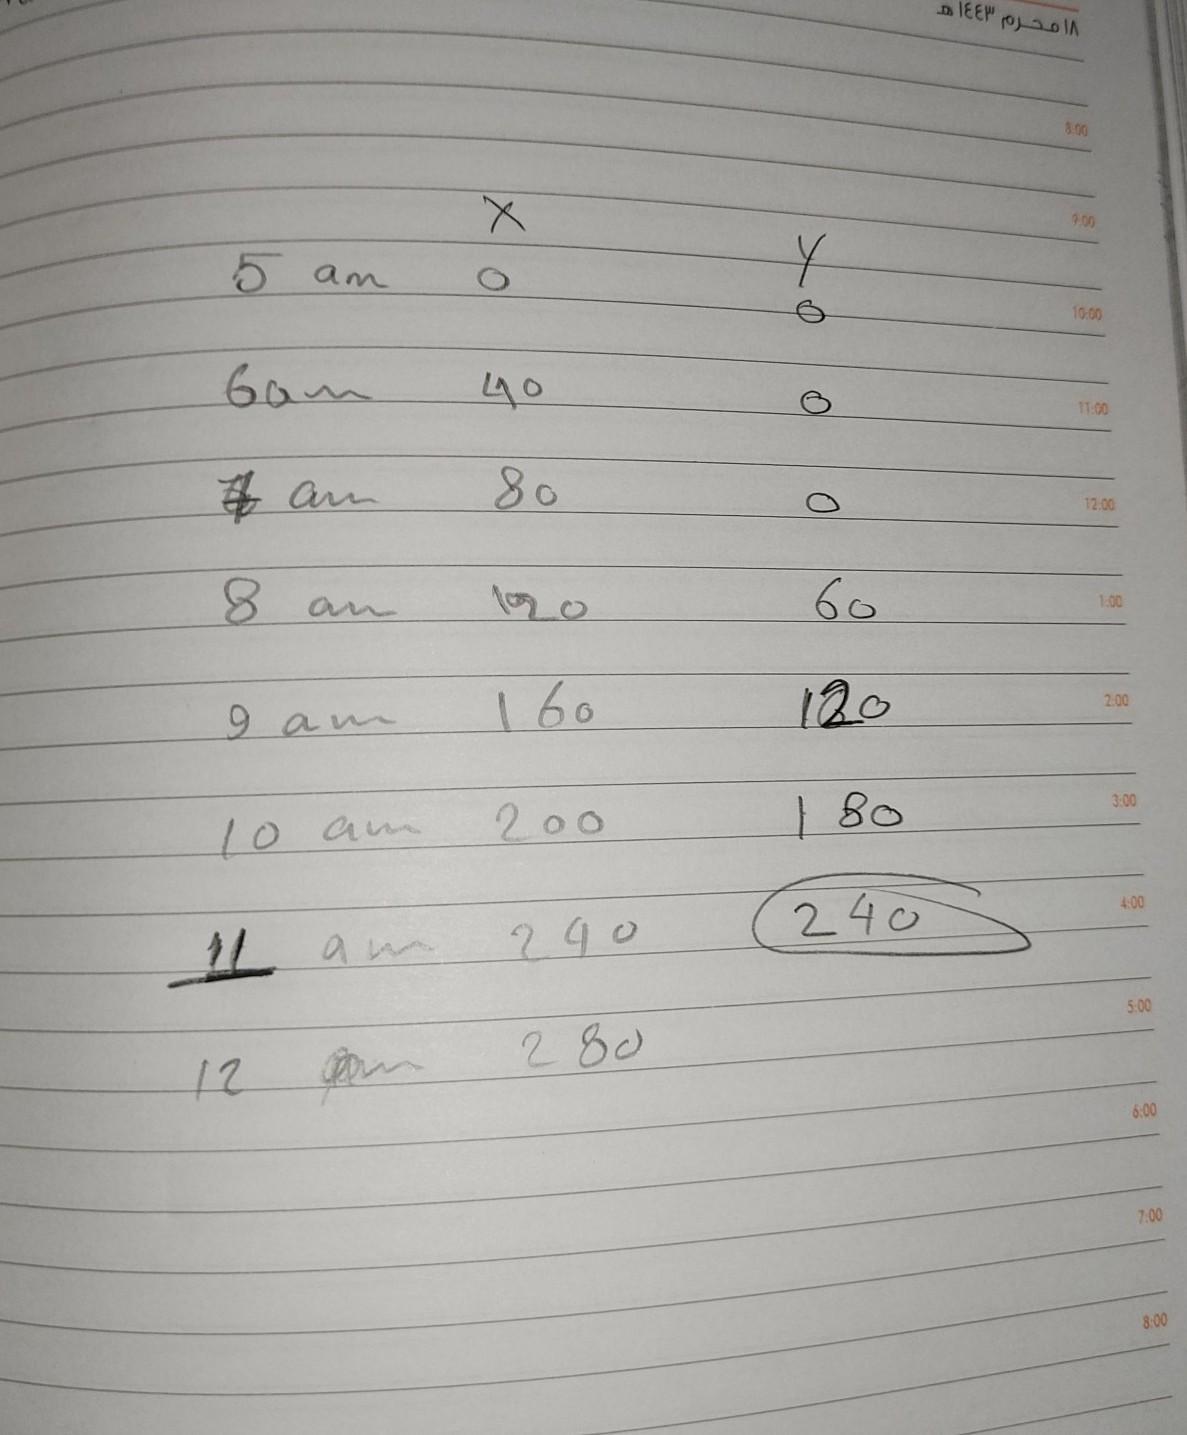 ١٨ محرم ١٤٤٣هـ
8:00
X
9:00
Y
5 am 0
0 10:00
6am 40 0 11:00
7 am 80 0 12:00
8 am 120 60 1:00
9 am 160 120 2:00
10 am 200 180 3:00
11 am 240 240 4:00
12 am 280 5:00
6:00
7:00
8:00